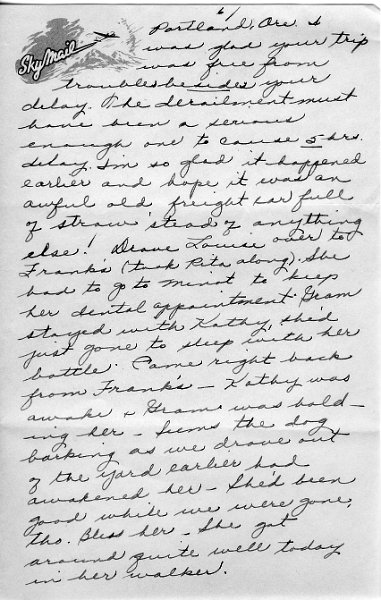 6/
Portland, Ore. &
Sky Mail
was glad your trip
was free from
troubles besides your
delay. The derailment must
have been a serious
enough one to cause 5 hrs.
delay. I'm so glad it happened
earlier and hope it was an
awful old freight car full
of straw 'stead of anything
else! Drove Louise over to
Frank's (took Rita along). She
had to go to Minot to keep
her dental appointment. Gram
stayed with Kathy, she'd
just gone to sleep with her
bottle. Came right back
from Frank's - Kathy was
awake & Gram was hold-
ing her - Seems the dog
barking as we drove out
of the yard earlier had
awakened her - She'd been
good while we were gone,
tho. Bless her - She got
around quite well today
in her walker.